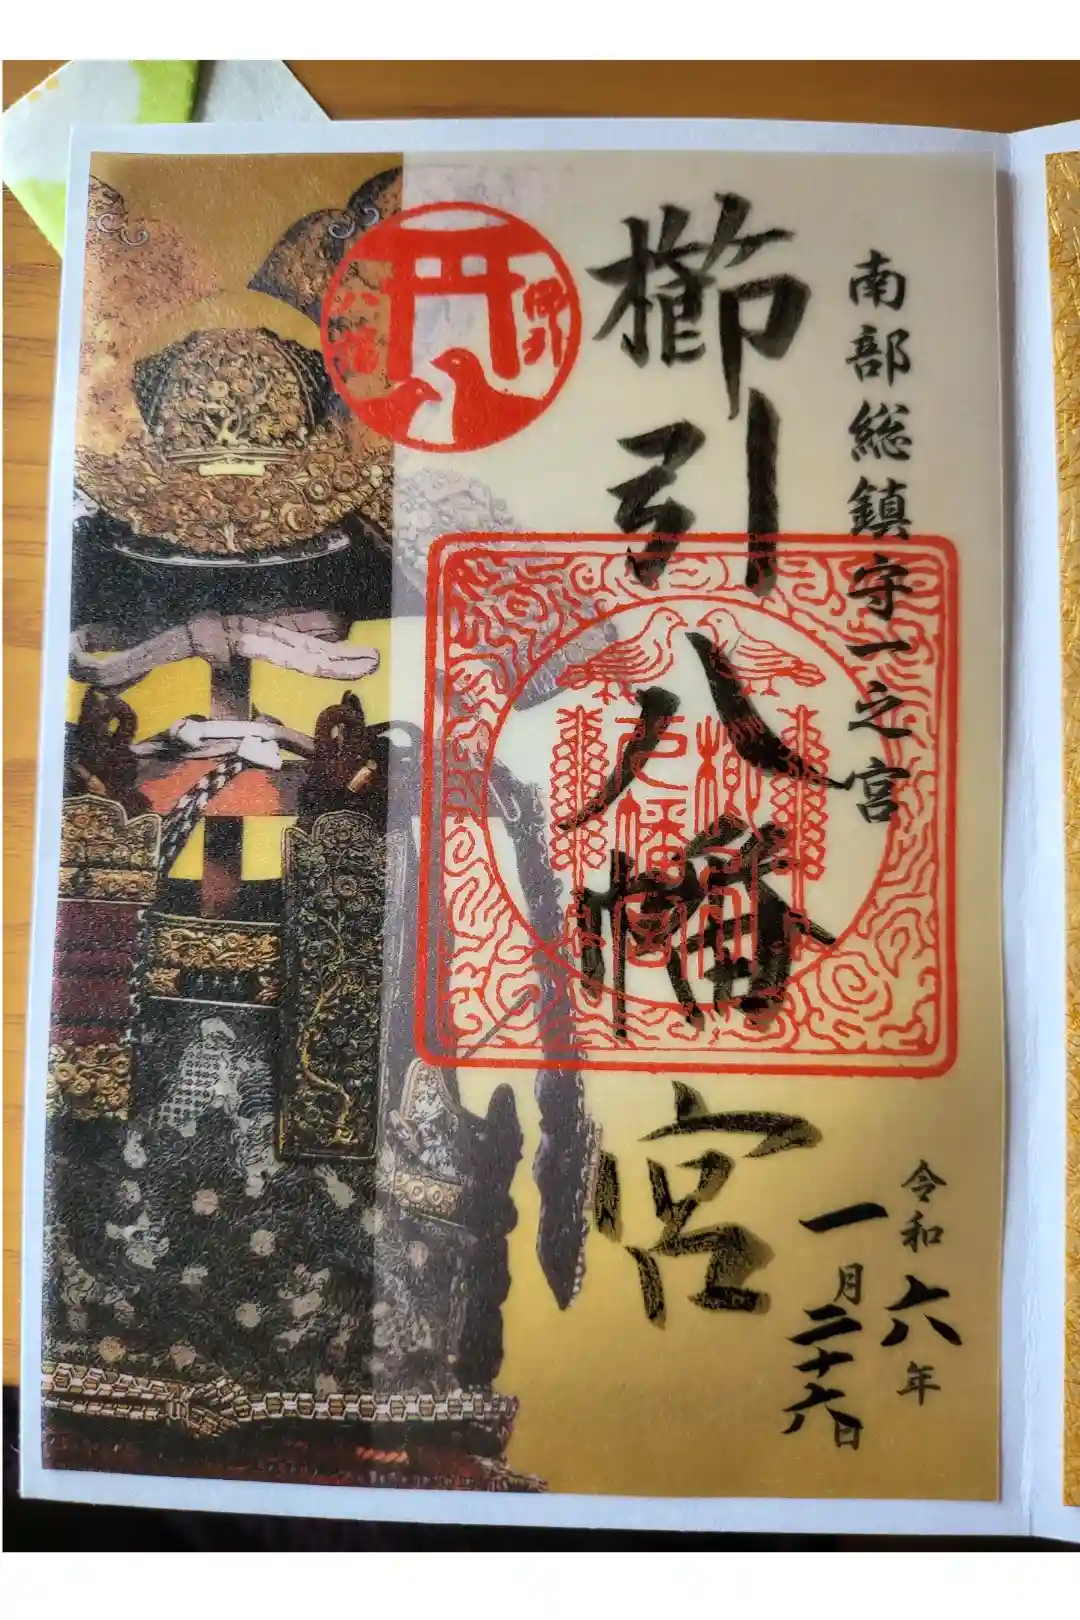 南部総鎮守一之宮
櫛引八幡宮
令和六年
一月二十六日
櫛引
八幡宮
八幡